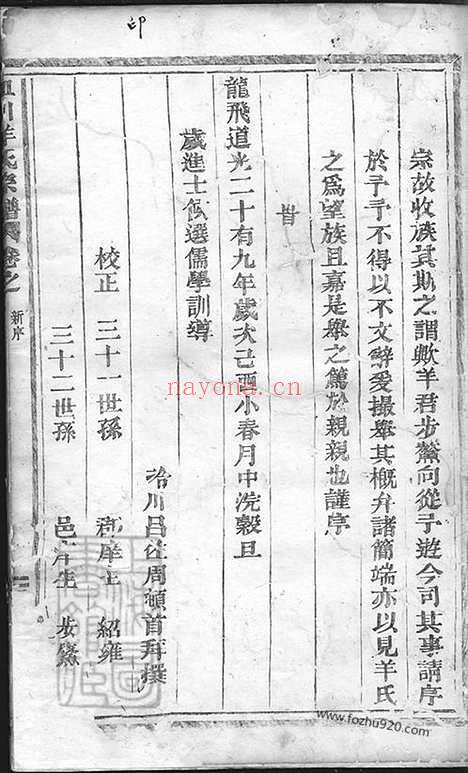 印
宗故收族其斯之謂歟羊君步鰲向從予遊今司其事請序
於予予不得以不文辭爰撮舉其概弁諸簡端亦以見羊氏
之爲望族且嘉是舉之篤於親親也謹序
旹
龍飛道光二十有九年歲次己酉小春月中浣穀旦
歲進士候選儒學訓導
呂
周頓首拜撰
校正 三十一世孫 郡庠生 紹雍
三十二世孫 邑庠生 步鰲
羊氏宗譜
卷之一
新序
nayona.cn
www.fozhu920.com